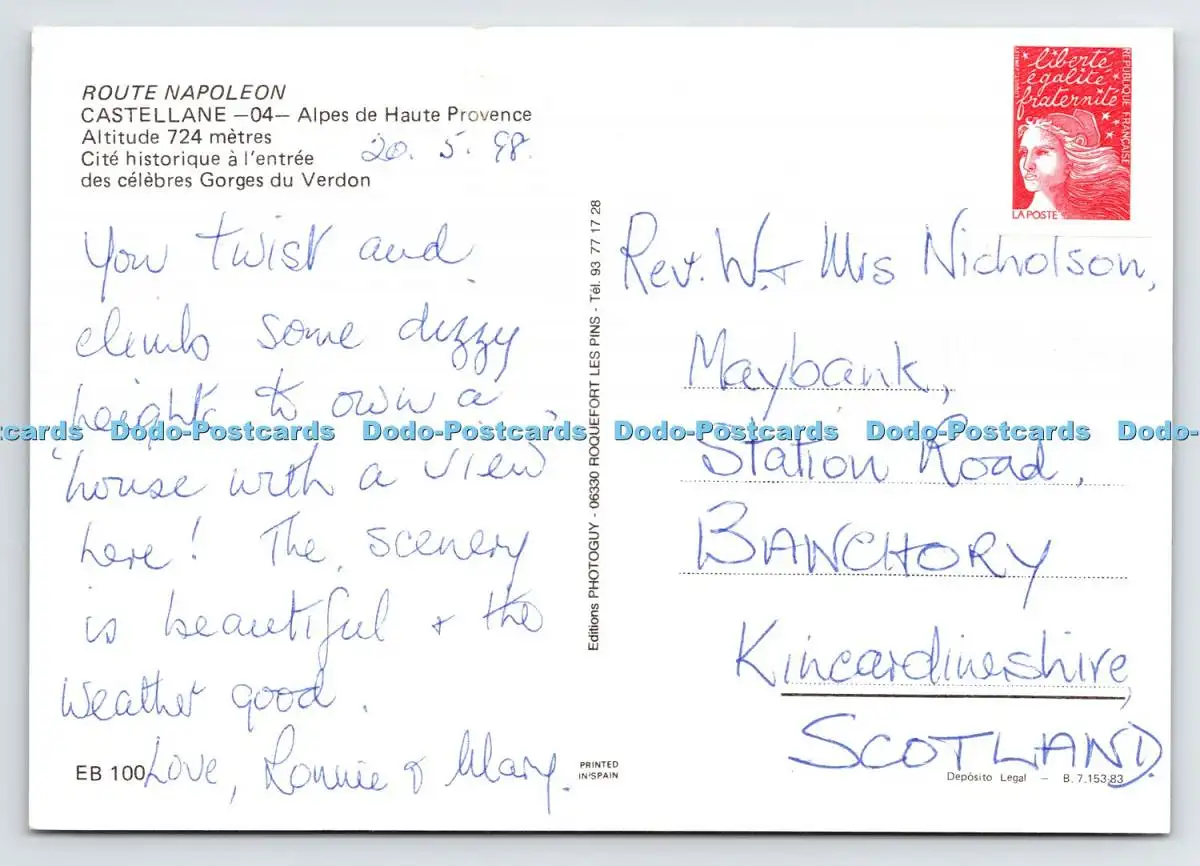 ROUTE NAPOLEON
CASTELLANE —04— Alpes de Haute Provence
Altitude 724 mètres
Cité historique à l'entrée
des célèbres Gorges du Verdon
20. 5. 98.
You twist and
climb some dizzy
heights to own a
'house with a view'
here! The scenery
is beautiful & the
weather good.
Love, Ronnie & Mary.
EB 100
PRINTED
IN SPAIN
Editions PHOTOGUY - 06330 ROQUEFORT LES PINS - Tél. 93 77 17 28
liberté
égalité
fraternité
RÉPUBLIQUE FRANÇAISE
LA POSTE
Rev. W. + Mrs Nicholson,
Maybank,
Station Road,
BANCHORY
Kincardineshire,
SCOTLAND.
Depósito Legal — B. 7.153-83
tcards Dodo-Postcards Dodo-Postcards Dodo-Postcards Dodo-Postcards Dodo-